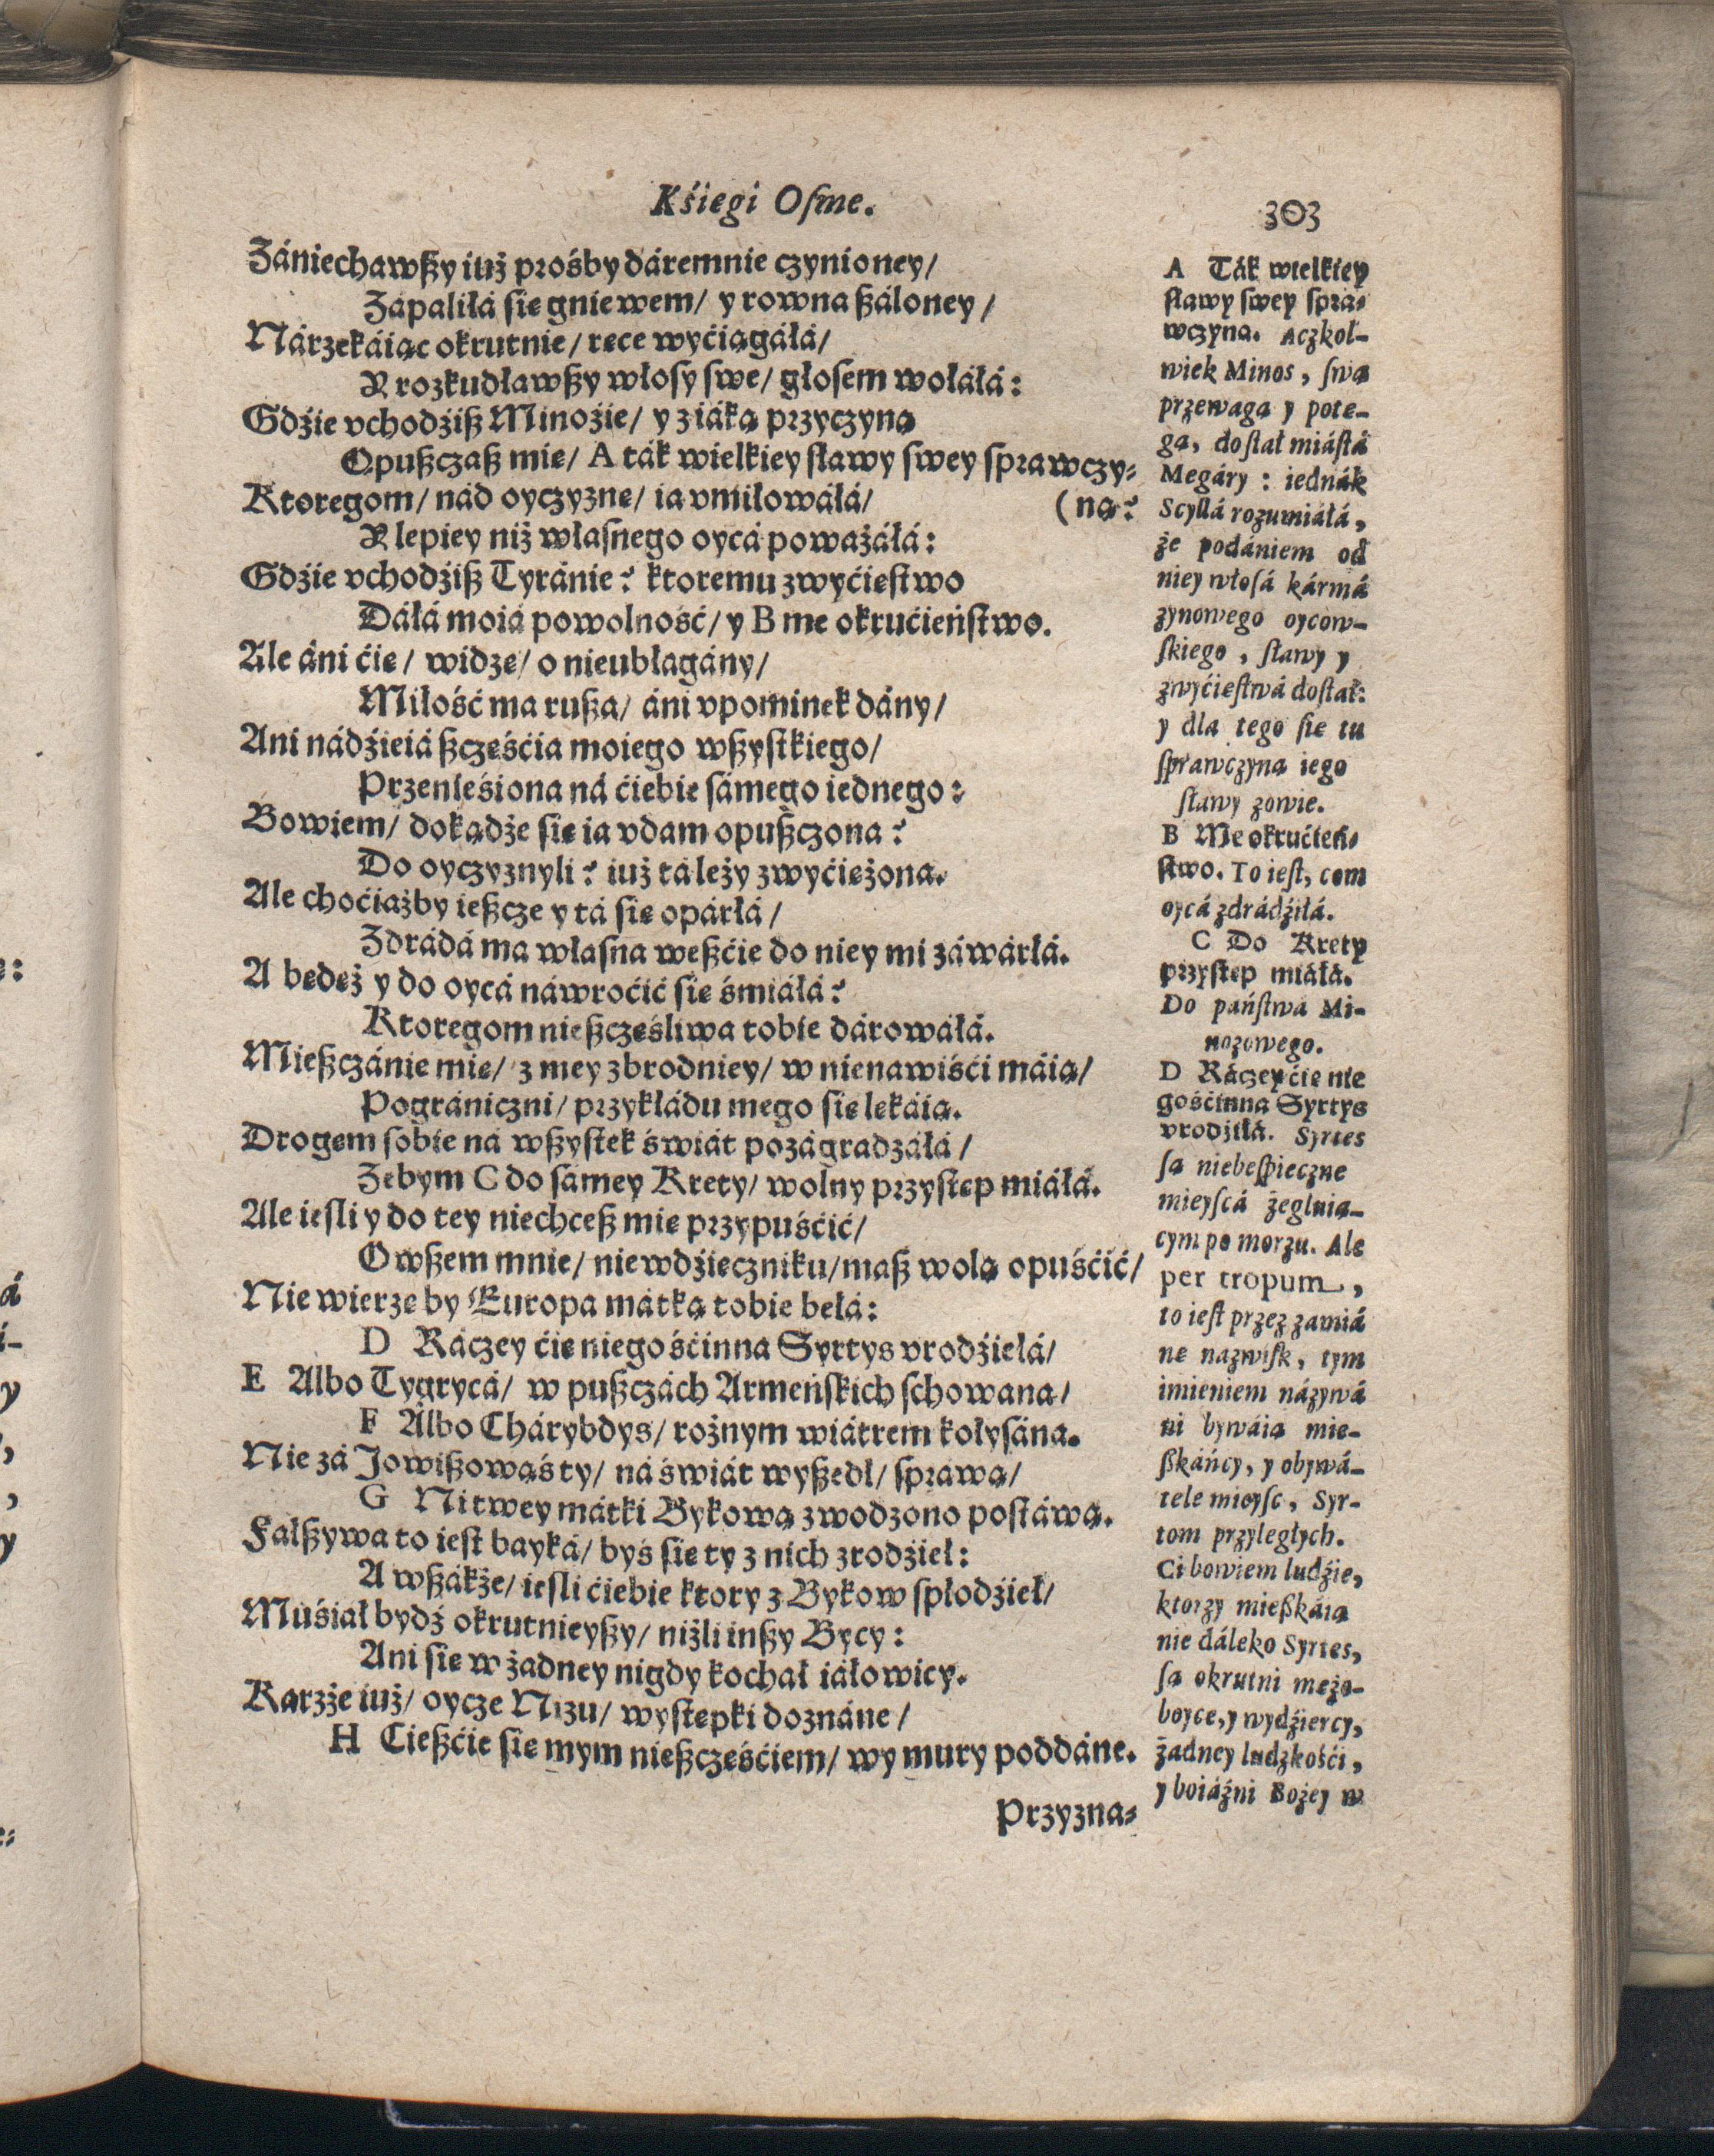 Kśiegi Oſme.
303
Zániechawßy iuż prośby dáremnie czynioney/
Zápaliłá ſię gniewem/ y rowna ßáloney/
Nárzekáiąc okrutnie/ ręce wyćiągáłá/
Y rozkudławßy włoſy ſwe/ głoſem wołáłá:
Gdźie vchodźiß Minoźie/ y z iáką przyczyną
Opußczaß mię/ A ták wielkiey ſławy ſwey ſprawczy-
Ktoregom/ nád oyczyznę/ ia vmiłowáłá/ (ną?
Y lepiey niż własnego oycá poważáłá:
Gdźie vchodźiß Tyránie? ktoremu zwyćięſtwo
Dáłá moiá powolność/ y B me okrućieńſtwo.
Ale áni ćię/ widzę/ o nieubłagány/
Miłość ma rußa/ áni vpominek dány/
Ani nádźieiá ßczęśćia moiego wßyſtkiego/
Przenieśiona ná ćiebie ſámego iednego:
Bowiem/ dokądże ſię ia vdam opußczona?
Do oyczyznyli? iuż tá leży zwyćiężona.
Ale choćiażby ießcze y tá ſię opárłá/
Zdrádá ma własna weßćie do niey mi záwárłá.
A będęż y do oycá náwroćić ſię śmiáłá?
Ktoregom nießczęśliwa tobie dárowáłá.
Mießczánie mię/ z mey zbrodniey/ w nienawiśći máią/
Pográniczni/ przykłádu mego ſię lękáią.
Drogęm ſobie ná wßyſtek świát pozágradzáłá/
Zebym C do ſámey Krety/ wolny przyſtęp miáłá.
Ale ieſli y do tey niechceß mię przypuśćić/
Owßem mnie/ niewdźięczniku/ maß wolą opuśćić/
Nie wierzę by Europa mátką tobie bełá:
D Ráczey ćię niegośćinna Syrtys vrodźiełá/
E Albo Tygrycá/ w pußczách Armeńſkich ſchowana/
F Albo Chárybdys/ rożnym wiátrem kołyſána.
Nie zá Jowißowąś ty/ ná świát wyßedł/ ſprawą/
G Ni twey mátki Bykową zwodzono poſtáwą.
Fałßywa to ieſt bayká/ byś ſię ty z nich zrodźieł:
A wßákże/ ieſli ćiebie ktory z Bykow ſpłodźieł/
Muśiał bydź okrutnieyßy/ niżli inßy Bycy:
Ani ſię w żadney nigdy kochał iáłowicy.
Karzże iuż/ oycze Nizu/ wyſtępki doznáne/
H Cießćie ſię mym nießczęśćiem/ wy mury poddáne.
Przyzna-
A Ták wielkiey
ſławy ſwey ſpra-
wczyną. Aczkol-
wiek Minos, ſwą
przewagą y potę-
gą, doſtał miáſtá
Megáry: iednák
Scyllá rozumiáłá,
że podániem od
niey włoſá kármá
zynowego oycow-
ſkiego, ſławy y
zwyćięſtwá doſtał:
y dla tego ſię tu
ſprawczyną iego
ſławy zowie.
B Me okrućień-
ſtwo. To ieſt, com
oycá zdrádźiłá.
C Do Krety
przyſtęp miáłá.
Do páńſtwá Mi-
nozowego.
D Ráczey ćię nie
gośćinna Syrtys
vrodźiłá. Syrtes
ſą niebeſpieczne
mieyſcá żegluią-
cym po morzu. Ale
per tropum,
to ieſt przez zamiá
nę nazwiſk, tym
imieniem názywá
ni bywáią mie-
ßkáńcy, y obywá-
tele mieyſc, Syr-
tom przyległych.
Ci bowiem ludźie,
ktorzy mießkáią
nie dáleko Syrtes,
ſą okrutni mężo-
boyce, y wydźiercy,
żadney ludzkośći,
y boiáźni Bożey w